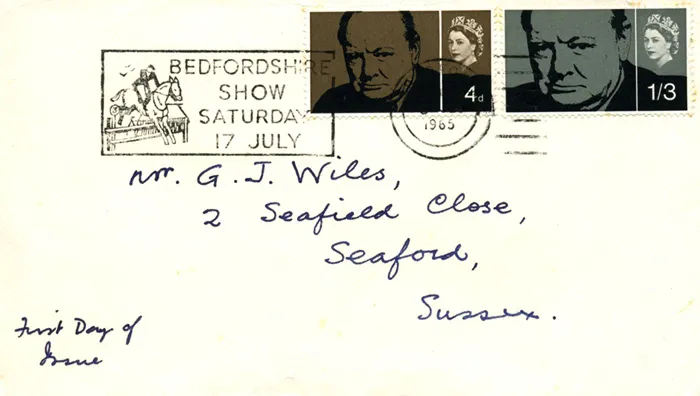 BEDFORDSHIRE
SHOW
SATURDAY
17 JULY
4d
1/3
1965
Mr. G. J. Wiles,
2 Seafield Close,
Seaford,
Sussex.
First Day of
Issue